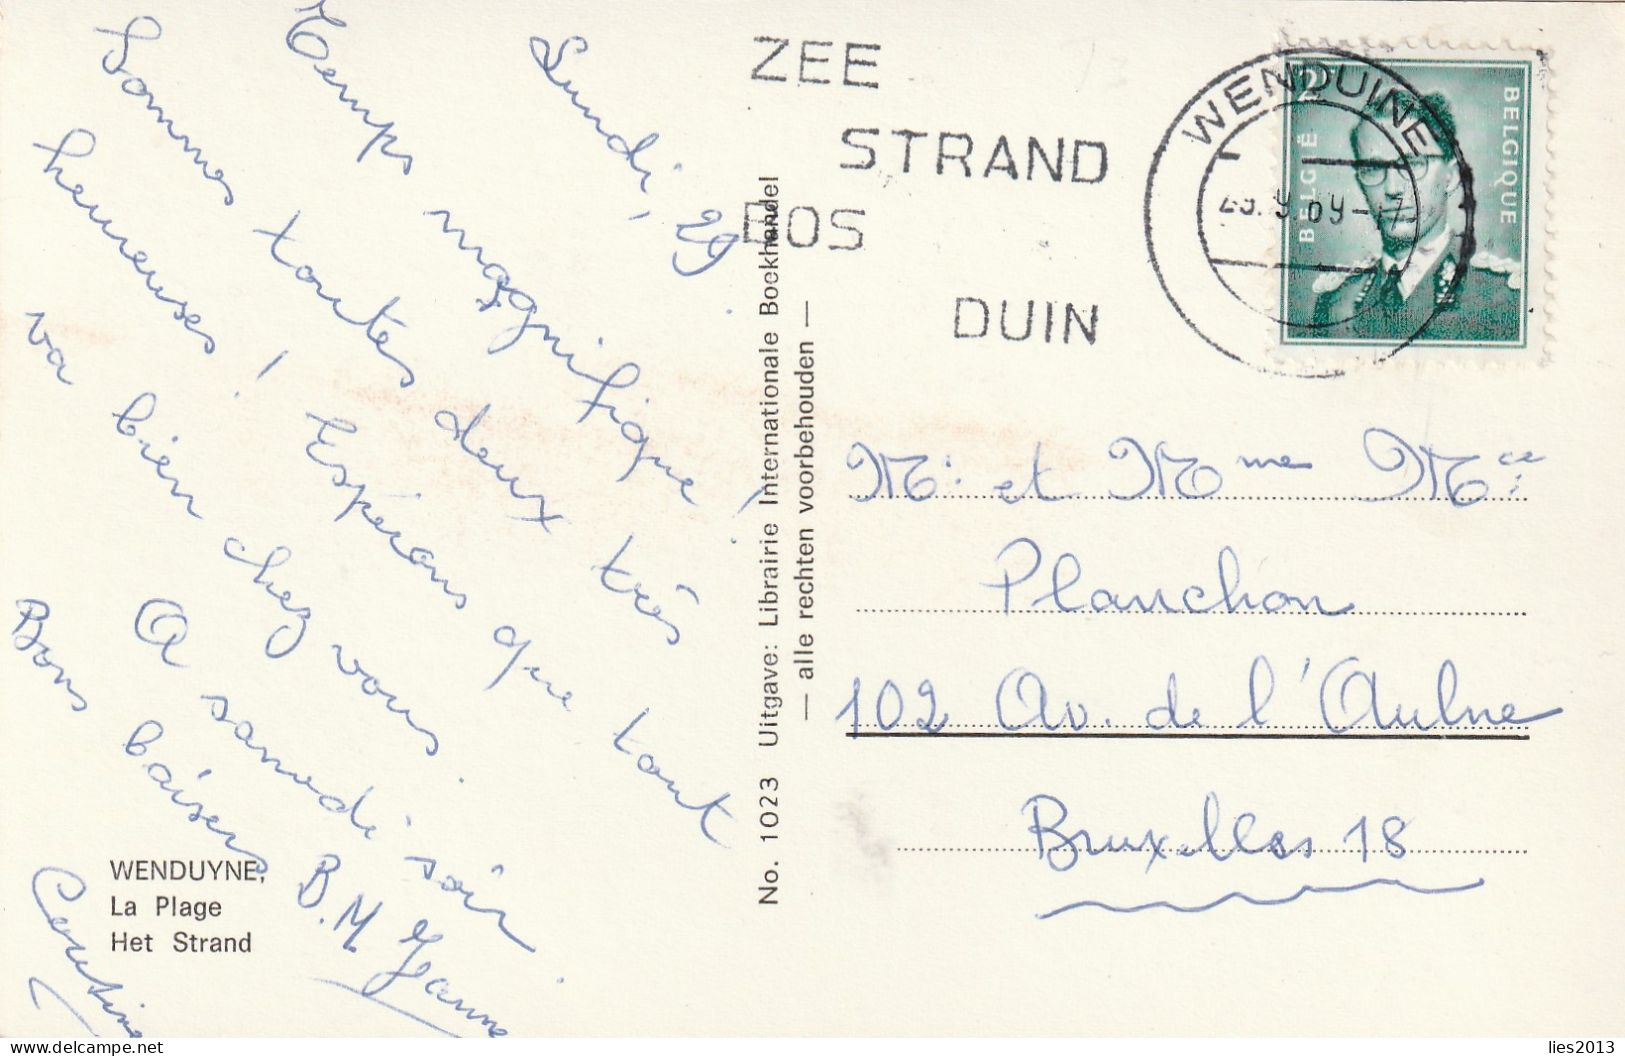 Lundi, 29
Temps magnifique !
Sommes toutes deux très
heureuses ! Espérons que tout
va bien chez vous.
A samedi soir.
Bons baisers
B.M. Jeanne
WENDUYNE,
La Plage
Het Strand
No. 1023 Uitgave: Librairie Internationale Boekhandel
— alle rechten voorbehouden —
ZEE
STRAND
BOS
DUIN
WENDUINE
2F
BELGIË
BELGIQUE
Mr. et Mme Mce
Planchon
102 Av. de l'Aulne
Bruxelles 18
lies2013